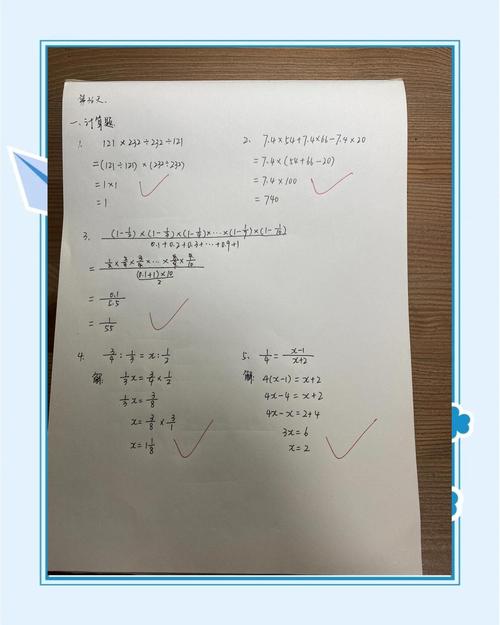 第36天.
一、计算题.
1. 121×232÷232÷121
=(121÷121)×(232÷232)
=1×1
=1
2. 7.4×54+7.4×66-7.4×20
=7.4×(54+66-20)
=7.4×100
=740
3. (1-1/2)×(1-1/3)×(1-1/4)×…×(1-1/9)×(1-1/10) / 0.1+0.2+0.3+…+0.9+1
= 1/2×2/3×3/4×…×8/9×9/10 / (0.1+1)×10/2
= 0.1/5.5
= 1/55
4. 3/4:1/3=x:1/2
解: 1/3x=3/4×1/2
1/3x=3/8
x=3/8×3/1
x=1 1/8
5. 1/4=x-1/x+2
解: 4(x-1)=x+2
4x-4=x+2
4x-x=2+4
3x=6
x=2